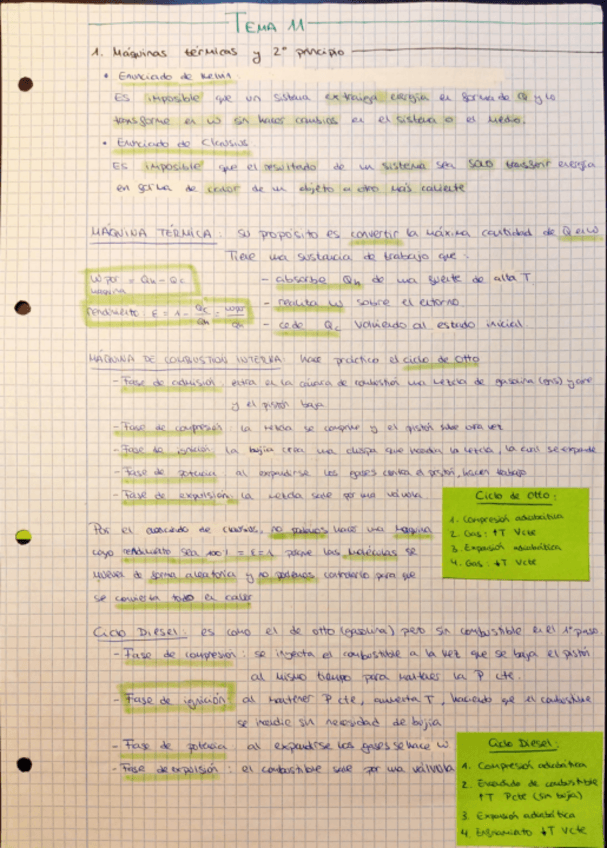 TEMA 11
1. Máquinas térmicas y 2º principio
• Enunciado de Kelvin
Es imposible que un sistema extraiga energía en forma de Q y lo
transforme en W sin hacer cambios en el sistema o el medio.
• Enunciado de Clausius
Es imposible que el resultado de un sistema sea solo transferir energía
en forma de calor de un objeto a otro más caliente
MÁQUINA TÉRMICA: su propósito es convertir la máxima cantidad de Q en W
Tiene una sustancia de trabajo que:
W por = Qh - Qc
máquina
- absorbe Qh de una fuente de alta T
- realiza W sobre el entorno.
rendimiento: E = 1 - Qc/Qh = Wpor/Qh
- cede Qc volviendo al estado inicial.
MÁQUINA DE COMBUSTIÓN INTERNA: hace práctico el ciclo de Otto
- Fase de admisión: entra en la cámara de combustión una mezcla de gasolina (gas) y aire
y el pistón baja
- Fase de compresión: la mezcla se comprime y el pistón sube otra vez
- Fase de ignición: la bujía crea una chispa que incendia la mezcla, la cual se expande
- Fase de potencia: al expandirse los gases contra el pistón, hacen trabajo
- Fase de expulsión: la mezcla sale por una válvula.
Por el enunciado de Clausius, no podemos hacer una máquina
cuyo rendimiento sea 100% = E=1 porque las moléculas se
mueven de forma aleatoria y no podemos controlarlo para que
se convierta todo en calor
Ciclo de Otto:
1. Compresión adiabática
2. Gas: ↑T Vcte
3. Expansión adiabática
4. Gas: ↓T Vcte
Ciclo Diesel: es como el de Otto (gasolina) pero sin combustible en el 1º paso.
- Fase de compresión: se inyecta el combustible a la vez que se baja el pistón
al mismo tiempo para mantener la P cte.
- Fase de ignición: al mantener P cte, aumenta T, haciendo que el combustible
se incendie sin necesidad de bujía
- Fase de potencia: al expandirse los gases se hace W
- Fase de expulsión: el combustible sale por una válvula
Ciclo Diesel:
1. Compresión adiabática
2. Encendido de combustible
↑T Pcte (sin bujía)
3. Expansión adiabática
4. Enfriamiento ↓T Vcte